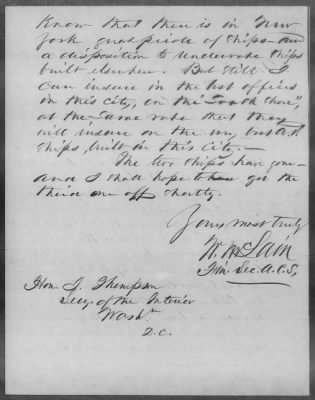 Know that there is in New
York great pride of ships - and
a disposition to underrate ships
built elsewhere. But still I
can insure in the best offices
in this city, on the "South Shore",
at the same rate that they
will insure on the very best
ships, built in this city. -
The two ships have gone -
and I shall hope to get the
third one off shortly.
Yours most truly
W. McLain
Fin. Sec. A. C. S.
Hon. J. Thompson
Secy. of the Interior
Washn
D.C.